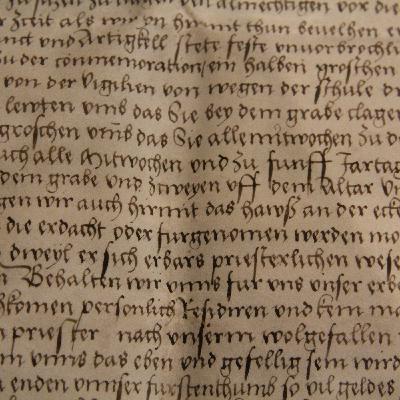 almechtigen vor die
r Zeit als wir yn hirmit thun bevelhen
unct und Artigkell stete feste unvorbrochli
zu der commemoration, ein halben groschen
von der Vigilien von wegen der schule
lewten umb das Sie bey dem grabe clagen
groschen umb das Sie alle mitwochen zu d
uch alle Mitwochen und zu funff Jartag
dem grabe und zweyen uff dem Altar
gen wir auch hirmit das hawß an der ecke
die erdacht oder furgenomen werden mo
dweyl er sich erbars priesterlichen wese
Behalten wir unns fur uns unser erbe
hkomen personlich Residiren und kein
priester nach unserm wolgefallen
nn unns das eben und gefellig sein wird
enden unnser furstenthumb so vil geldes